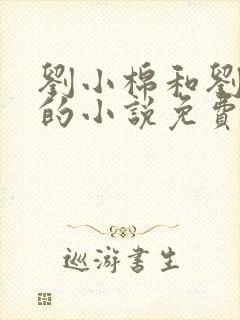 劉小棉和劉
的小說免費
巡游書生